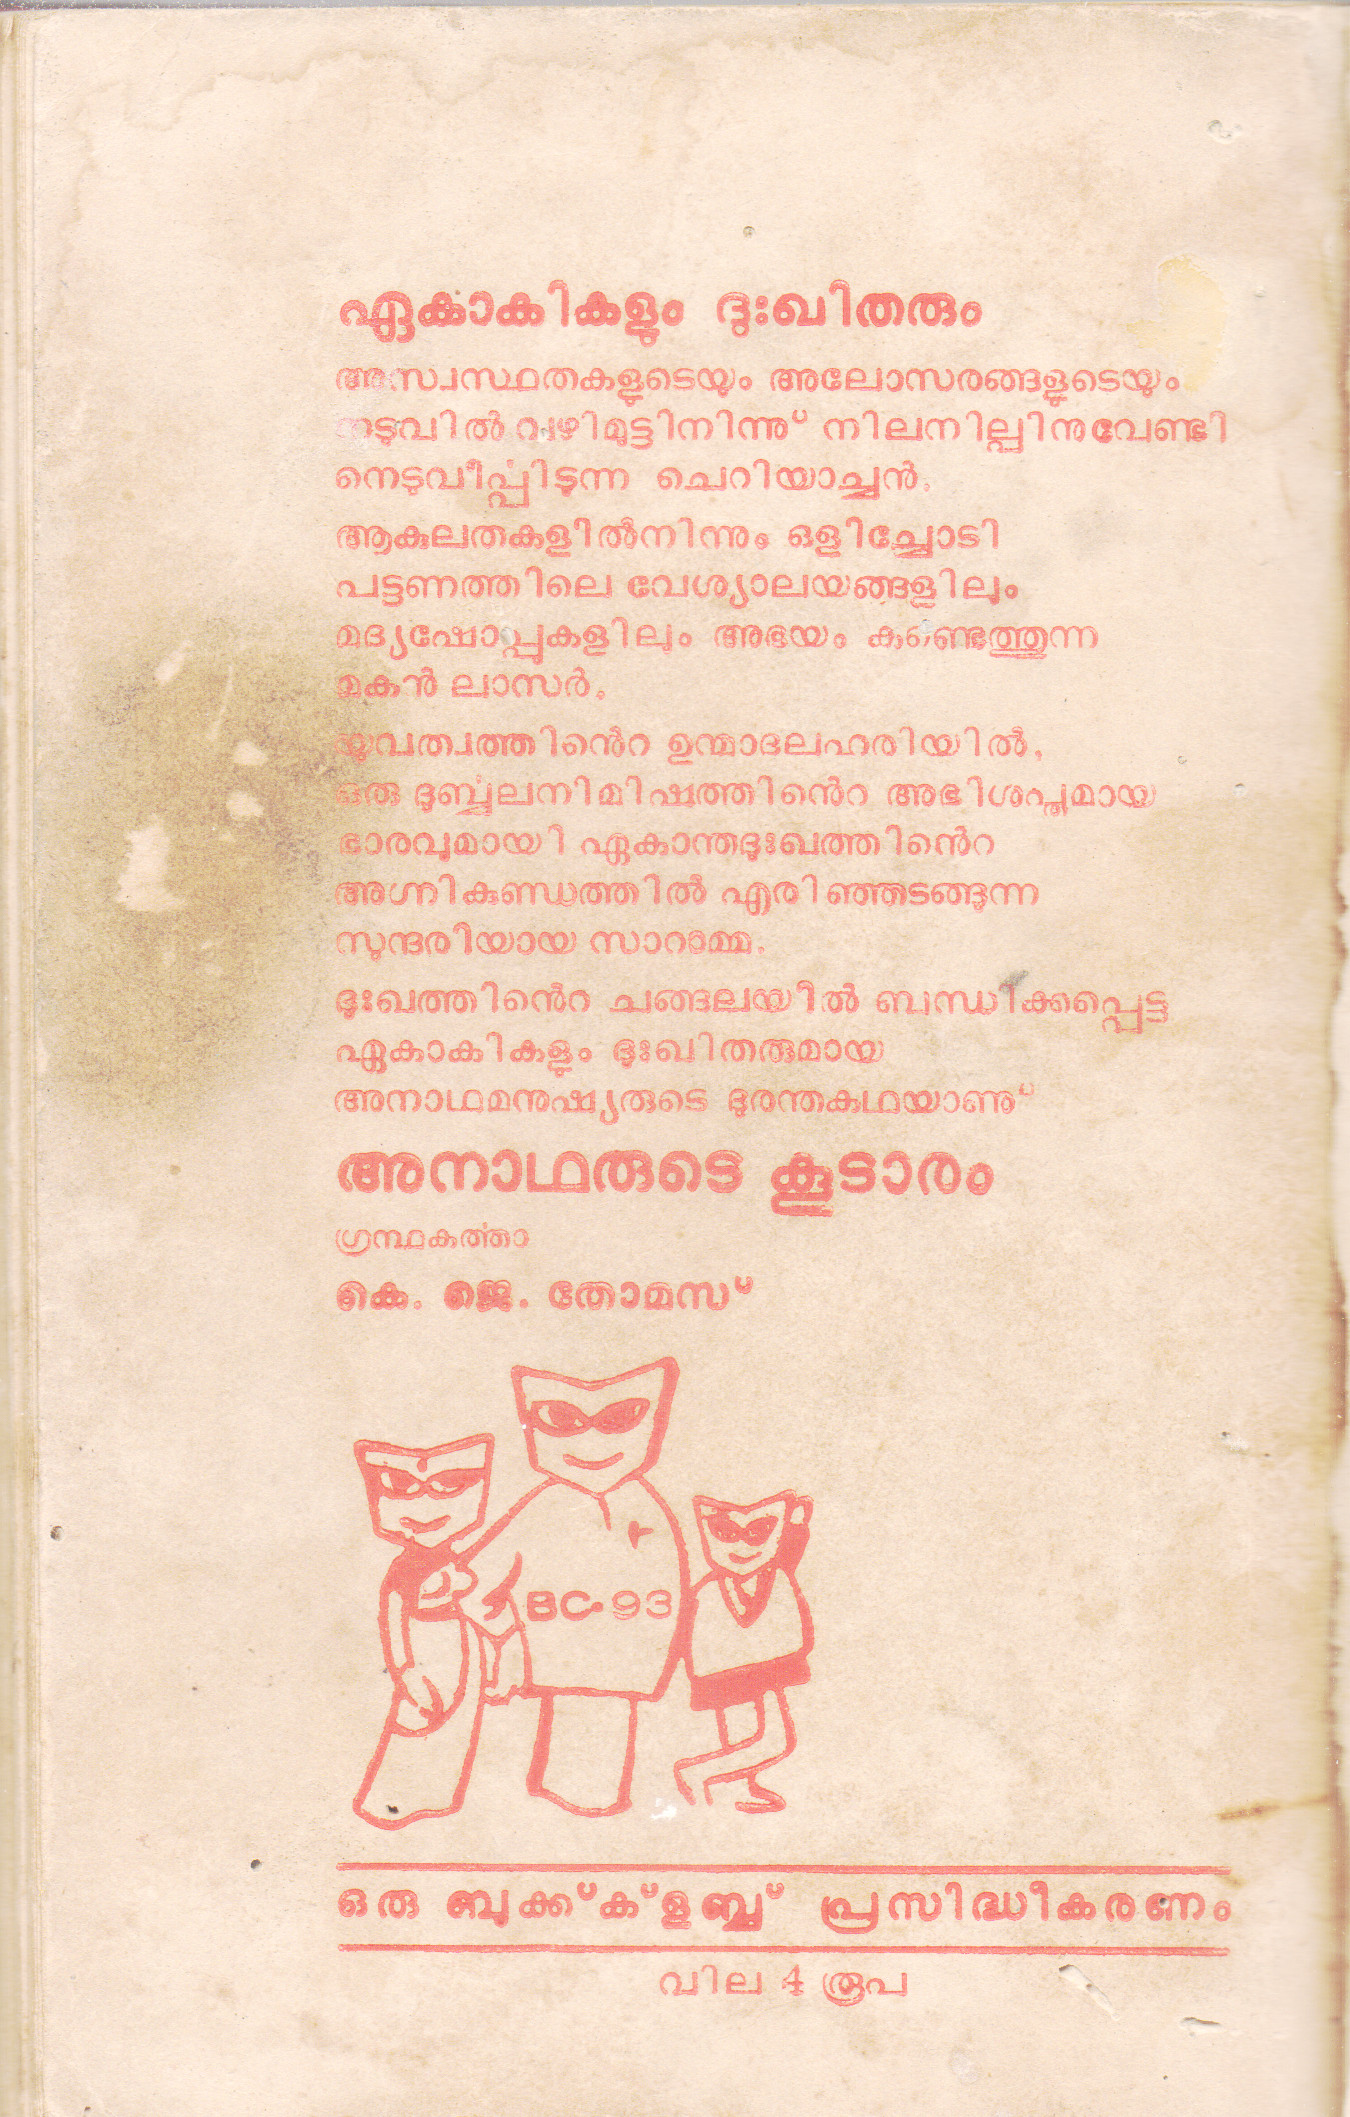 ഏകാകികളും ദുഃഖിതരും
അസ്വസ്ഥതകളുടെയും അലോസരങ്ങളുടെയും
നടുവിൽ വഴിമുട്ടിനിന്നു് നിലനില്പിനുവേണ്ടി
നെടുവീൎപ്പിടുന്ന ചെറിയാച്ചൻ.
ആകുലതകളിൽനിന്നും ഒളിച്ചോടി
പട്ടണത്തിലെ വേശ്യാലയങ്ങളിലും
മദ്യഷോപ്പുകളിലും അഭയം കണ്ടെത്തുന്ന
മകൻ ലാസർ.
യുവത്വത്തിൻെറ ഉന്മാദലഹരിയിൽ,
ഒരു ദുൎബ്ബലനിമിഷത്തിൻെറ അഭിശപ്തമായ
ഭാരവുമായി ഏകാന്തദുഃഖത്തിൻെറ
അഗ്നികുണ്ഡത്തിൽ എരിഞ്ഞടങ്ങുന്ന
സുന്ദരിയായ സാറാമ്മ.
ദുഃഖത്തിൻെറ ചങ്ങലയിൽ ബന്ധിക്കപ്പെട്ട
ഏകാകികളും ദുഃഖിതരുമായ
അനാഥമനുഷ്യരുടെ ദുരന്തകഥയാണു്
അനാഥരുടെ കൂടാരം
ഗ്രന്ഥകൎത്താ
കെ. ജെ. തോമസ്
BC-93
ഒരു ബുക്ക്ക്ളബ്ബ് പ്രസിദ്ധീകരണം
വില 4 രൂപ